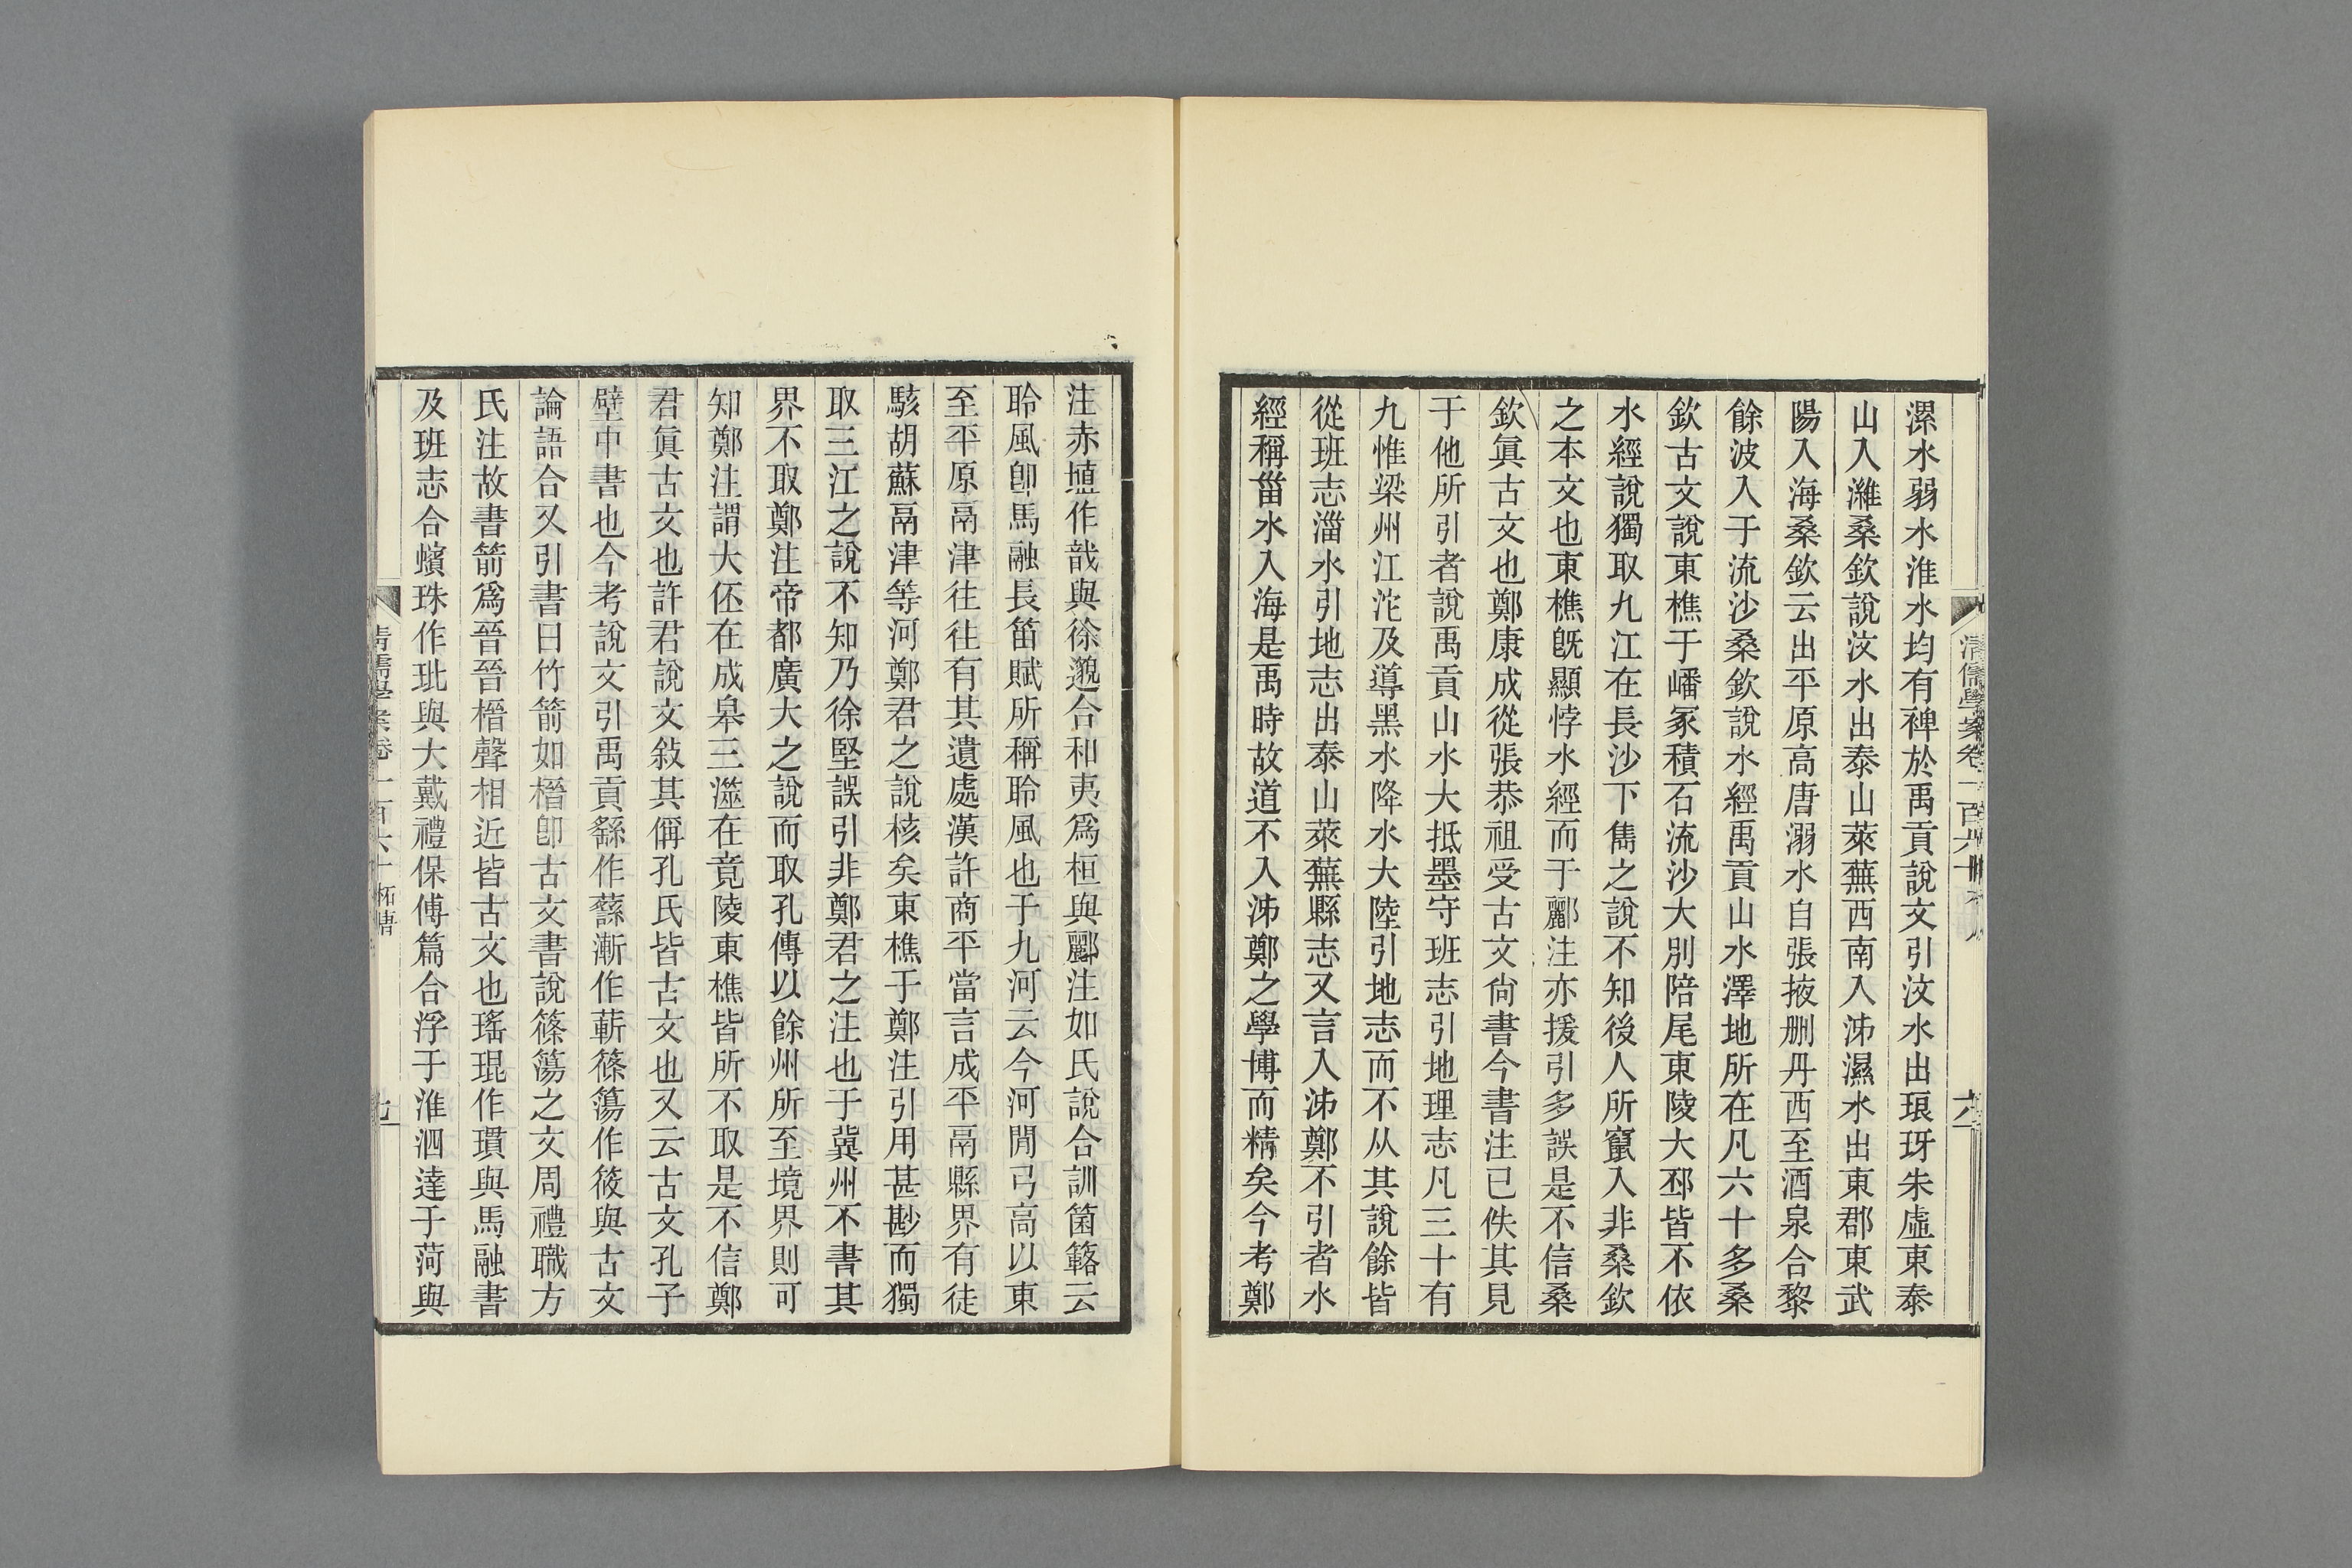 漯水弱水淮水均有裨於禹貢說文引汶水出琅玡朱虛東泰
山入濰桑欽說汶水出泰山萊蕪西南入泲濕水出東郡東武
陽入海桑欽云出平原高唐溺水自張掖删丹西至酒泉合黎
餘波入于流沙桑欽說水經禹貢山水澤地所在凡六十多桑
欽古文說東樵于嶓冢積石流沙大別陪尾東陵大邳皆不依
水經說獨取九江在長沙下雋之說不知後人所竄入非桑欽
之本文也東樵旣顯悖水經而于酈注亦援引多誤是不信桑
欽眞古文也鄭康成從張恭祖受古文尙書今書注已佚其見
于他所引者說禹貢山水大抵墨守班志引地理志凡三十有
九惟梁州江沱及導黑水降水大陸引地志而不从其說餘皆
從班志淄水引地志出泰山萊蕪縣志又言入泲鄭不引者水
經稱甾水入海是禹時故道不入泲鄭之學博而精矣今考鄭
注赤埴作戠與徐邈合和夷爲桓與酈注如氏說合訓箘簵云
聆風卽馬融長笛賦所稱聆風也于九河云今河閒弓高以東
至平原鬲津往往有其遺處漢許商平當言成平鬲縣界有徒
駭胡蘇鬲津等河鄭君之說核矣東樵于鄭注引用甚尠而獨
取三江之說不知乃徐堅誤引非鄭君之注也于冀州不書其
界不取鄭注帝都廣大之說而取孔傳以餘州所至境界則可
知鄭注謂大伾在成皋三澨在竟陵東樵皆所不取是不信鄭
君眞古文也許君說文敍其偁孔氏皆古文也又云古文孔子
壁中書也今考說文引禹貢繇作蘨漸作蔪篠簜作筱與古文
論語合又引書曰竹箭如楈卽古文書說篠簜之文周禮職方
氏注故書箭爲晉晉楈聲相近皆古文也瑤琨作瓘與馬融書
及班志合蠙珠作玭與大戴禮保傅篇合浮于淮泗達于菏與
清儒學案卷一百六十
六
清儒學案卷一百六十
七